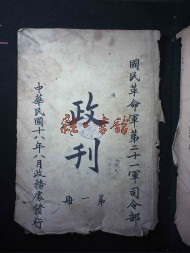 國民革命軍第二十一軍司令部
政刊
第一冊
中華民國十八年八月政務處發行